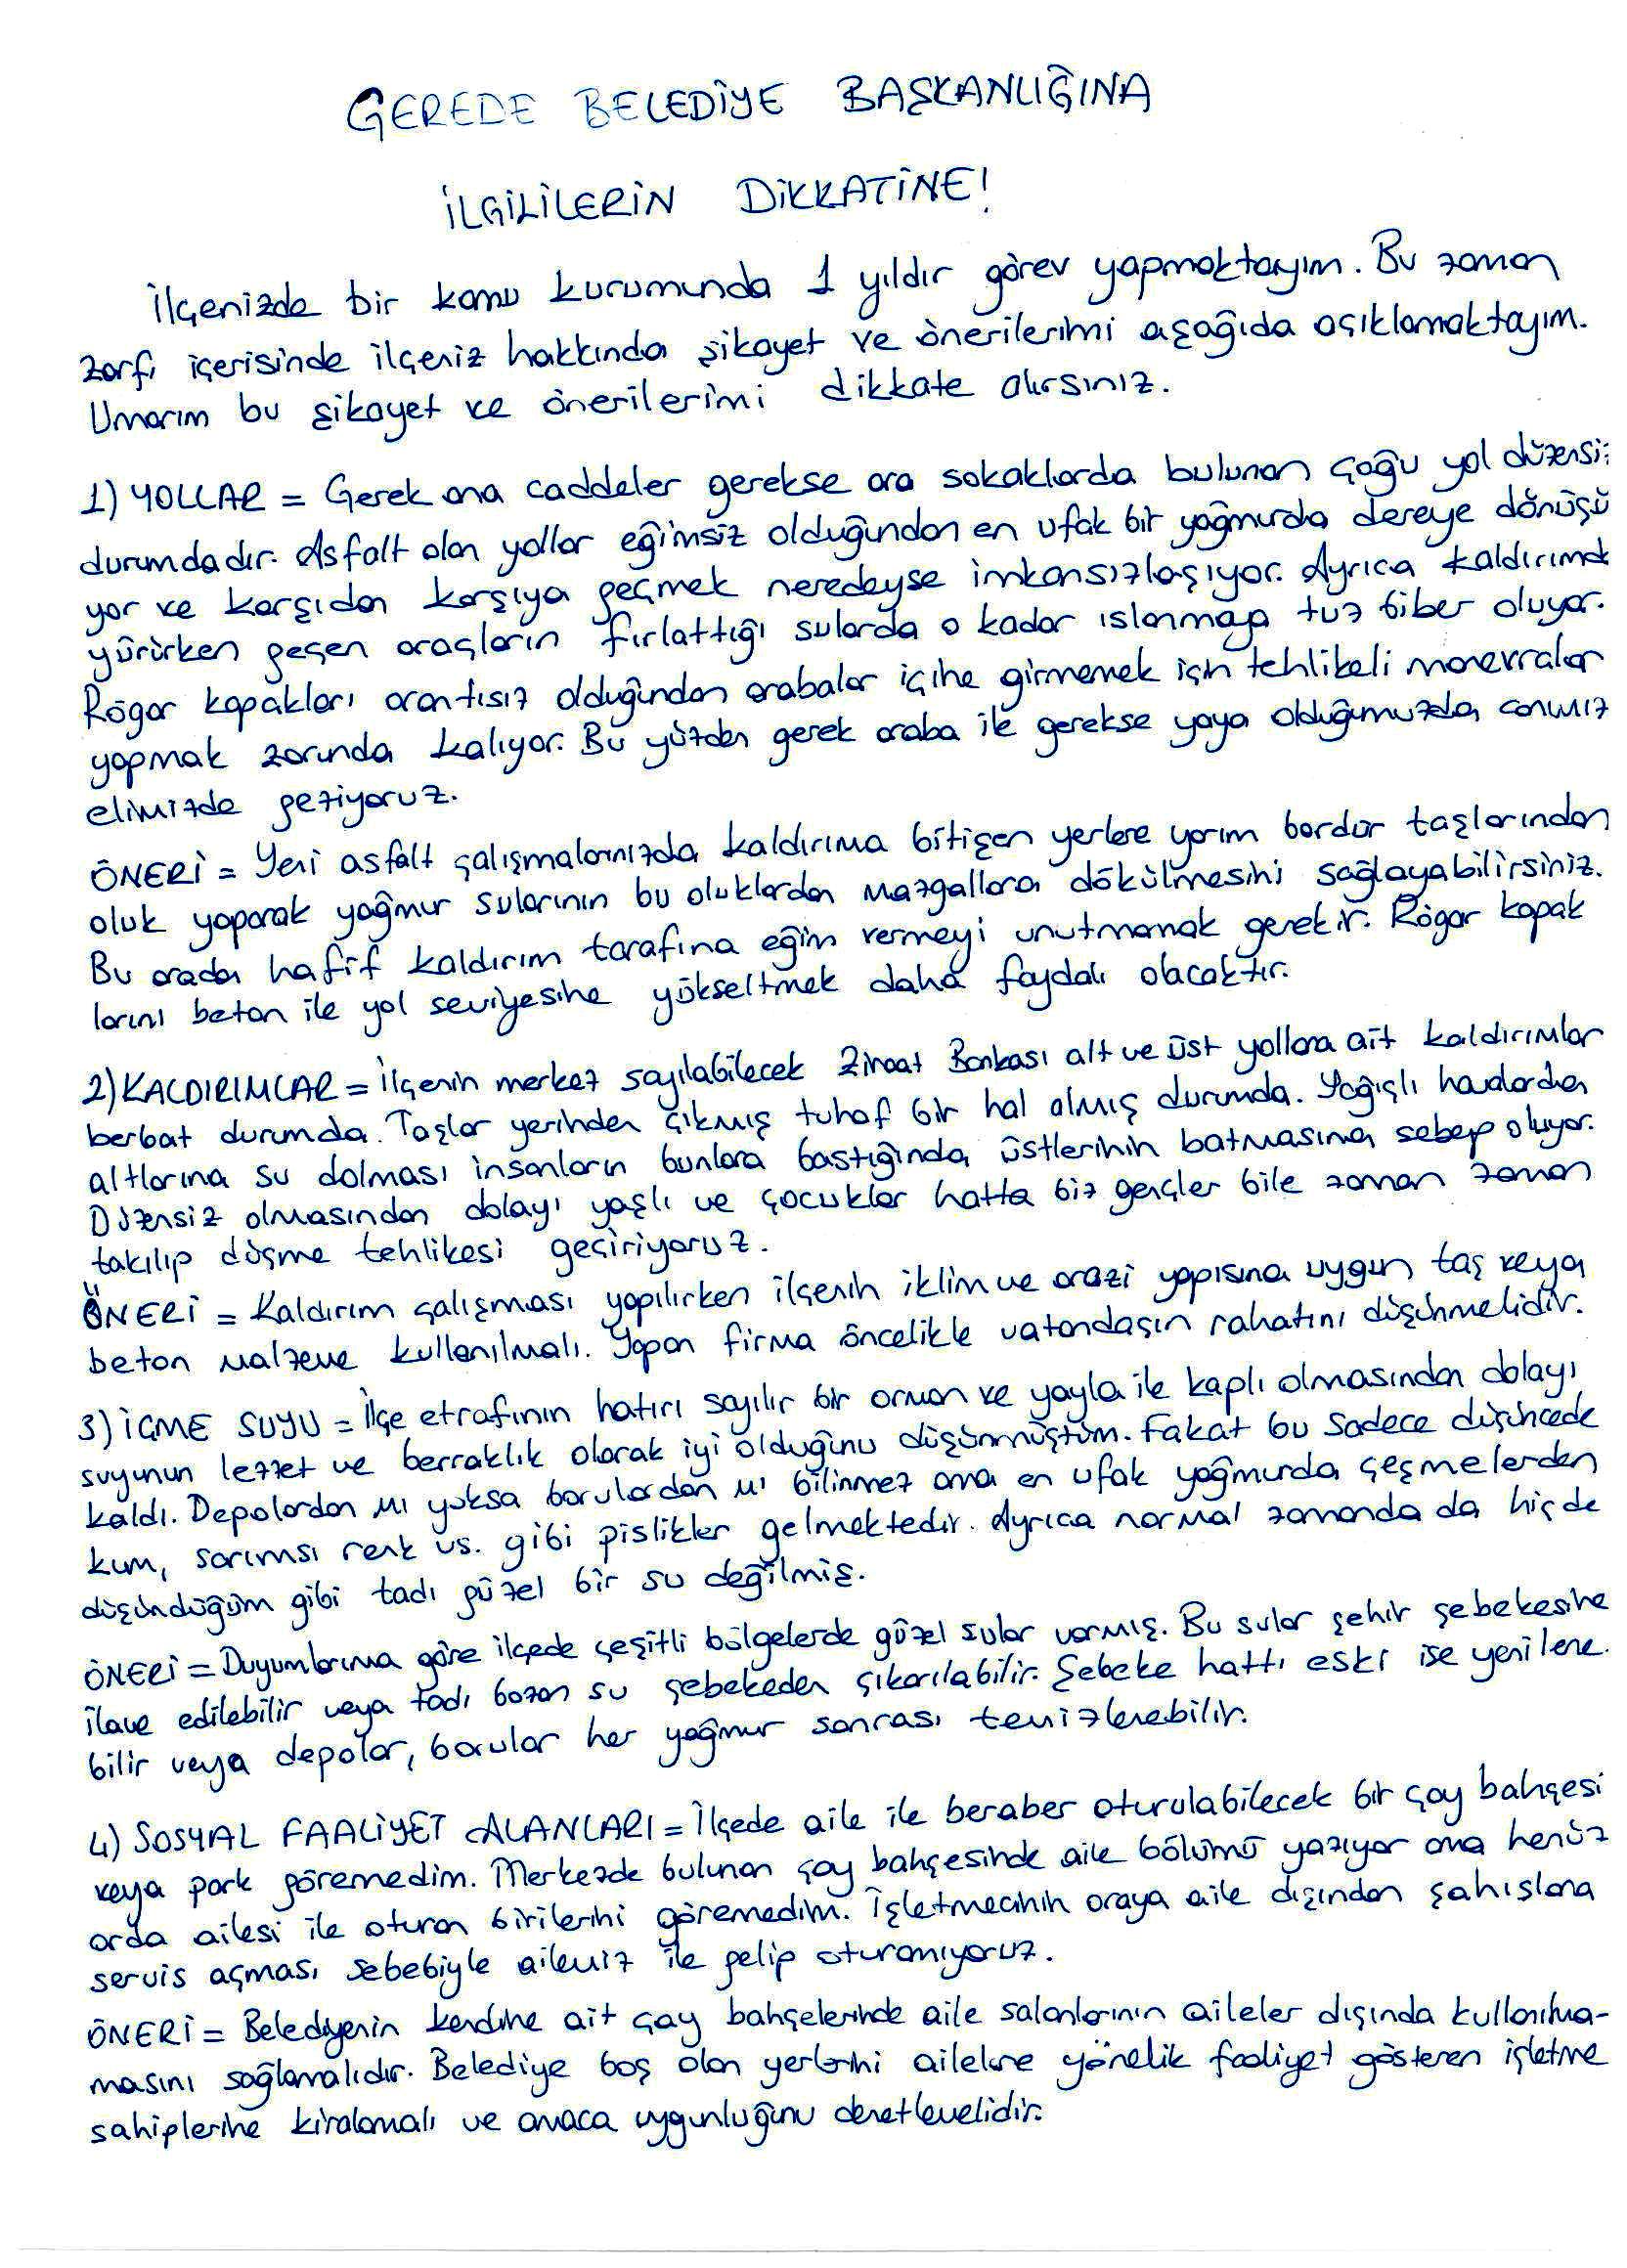 GEREDE BELEDİYE BAŞKANLIĞINA
İLGİLİLERİN DİKKATİNE!
İlçenizde bir kamu kurumunda 1 yıldır görev yapmaktayım. Bu zaman
zarfı içerisinde ilçeniz hakkında şikayet ve önerilerimi aşağıda açıklamaktayım.
Umarım bu şikayet ve önerilerimi dikkate alırsınız.
1) YOLLAR = Gerek ana caddeler gerekse ara sokaklarda bulunan çoğu yol düzensi
durumdadır. Asfalt olan yollar eğimsiz olduğundan en ufak bir yağmurda dereye dönüşü
yor ve karşıdan karşıya geçmek neredeyse imkansızlaşıyor. Ayrıca kaldırımda
yürürken geçen araçların fırlattığı sularda o kadar ıslanmaya tuz biber oluyor.
Rögar kapakları orantısız olduğundan arabalar içine girmemek için tehlikeli manevralar
yapmak zorunda kalıyor. Bu yüzden gerek araba ile gerekse yaya olduğumuzda canımız
elimizde geziyoruz.
ÖNERİ = Yeni asfalt çalışmalarınızda kaldırıma bitişen yerlere yarım bordür taşlarından
oluk yaparak yağmur sularının bu oluklardan mazgallara dökülmesini sağlayabilirsiniz.
Bu arada hafif kaldırım tarafına eğim vermeyi unutmamak gerekir. Rögar kapak
larını beton ile yol seviyesine yükseltmek daha faydalı olacaktır.
2) KALDIRIMLAR = İlçenin merkez sayılabilecek Ziraat Bankası alt ve üst yollara ait kaldırımlar
berbat durumda. Taşlar yerinden çıkmış tuhaf bir hal almış durumda. Yağışlı havalarda
altlarına su dolması insanların bunlara bastığında üstlerinin batmasına sebep oluyor.
Düzensiz olmasından dolayı yaşlı ve çocuklar hatta biz gençler bile zaman zaman
takılıp düşme tehlikesi geçiriyoruz.
ÖNERİ = Kaldırım çalışması yapılırken ilçenin iklim ve arazi yapısına uygun taş veya
beton malzeme kullanılmalı. Yapan firma öncelikle vatandaşın rahatını düşünmelidir.
3) İÇME SUYU = İlçe etrafının hatırı sayılır bir orman ve yayla ile kaplı olmasından dolayı
suyunun lezzet ve berraklık olarak iyi olduğunu düşünmüştüm. Fakat bu sadece düşüncede
kaldı. Depolardan mı yoksa borulardan mı bilinmez ama en ufak yağmurda çeşmelerden
kum, sarımsı renk vs. gibi pislikler gelmektedir. Ayrıca normal zamanda da hiçde
düşündüğüm gibi tadı güzel bir su değilmiş.
ÖNERİ = Duyumlarıma göre ilçede çeşitli bölgelerde güzel sular varmış. Bu sular şehir şebekesine
ilave edilebilir veya tadı bozan su şebekeden çıkarılabilir. Şebeke hattı eski ise yenilene.
bilir veya depolar, borular her yağmur sonrası temizlenebilir.
4) SOSYAL FAALİYET ALANLARI = İlçede aile ile beraber oturulabilecek bir çay bahçesi
veya park göremedim. Merkezde bulunan çay bahçesinde aile bölümü yazıyor ama henüz
orda ailesi ile oturan birilerini göremedim. İşletmecinin oraya aile dışından şahıslara
servis açması sebebiyle ailemiz ile gelip oturamıyoruz.
ÖNERİ = Belediyenin kendine ait çay bahçelerinde aile salonlarının aileler dışında kullanılma-
masını sağlamalıdır. Belediye boş olan yerlerini ailelere yönelik faaliyet gösteren işletme
sahiplerine kiralamalı ve amaca uygunluğunu denetlemelidir.